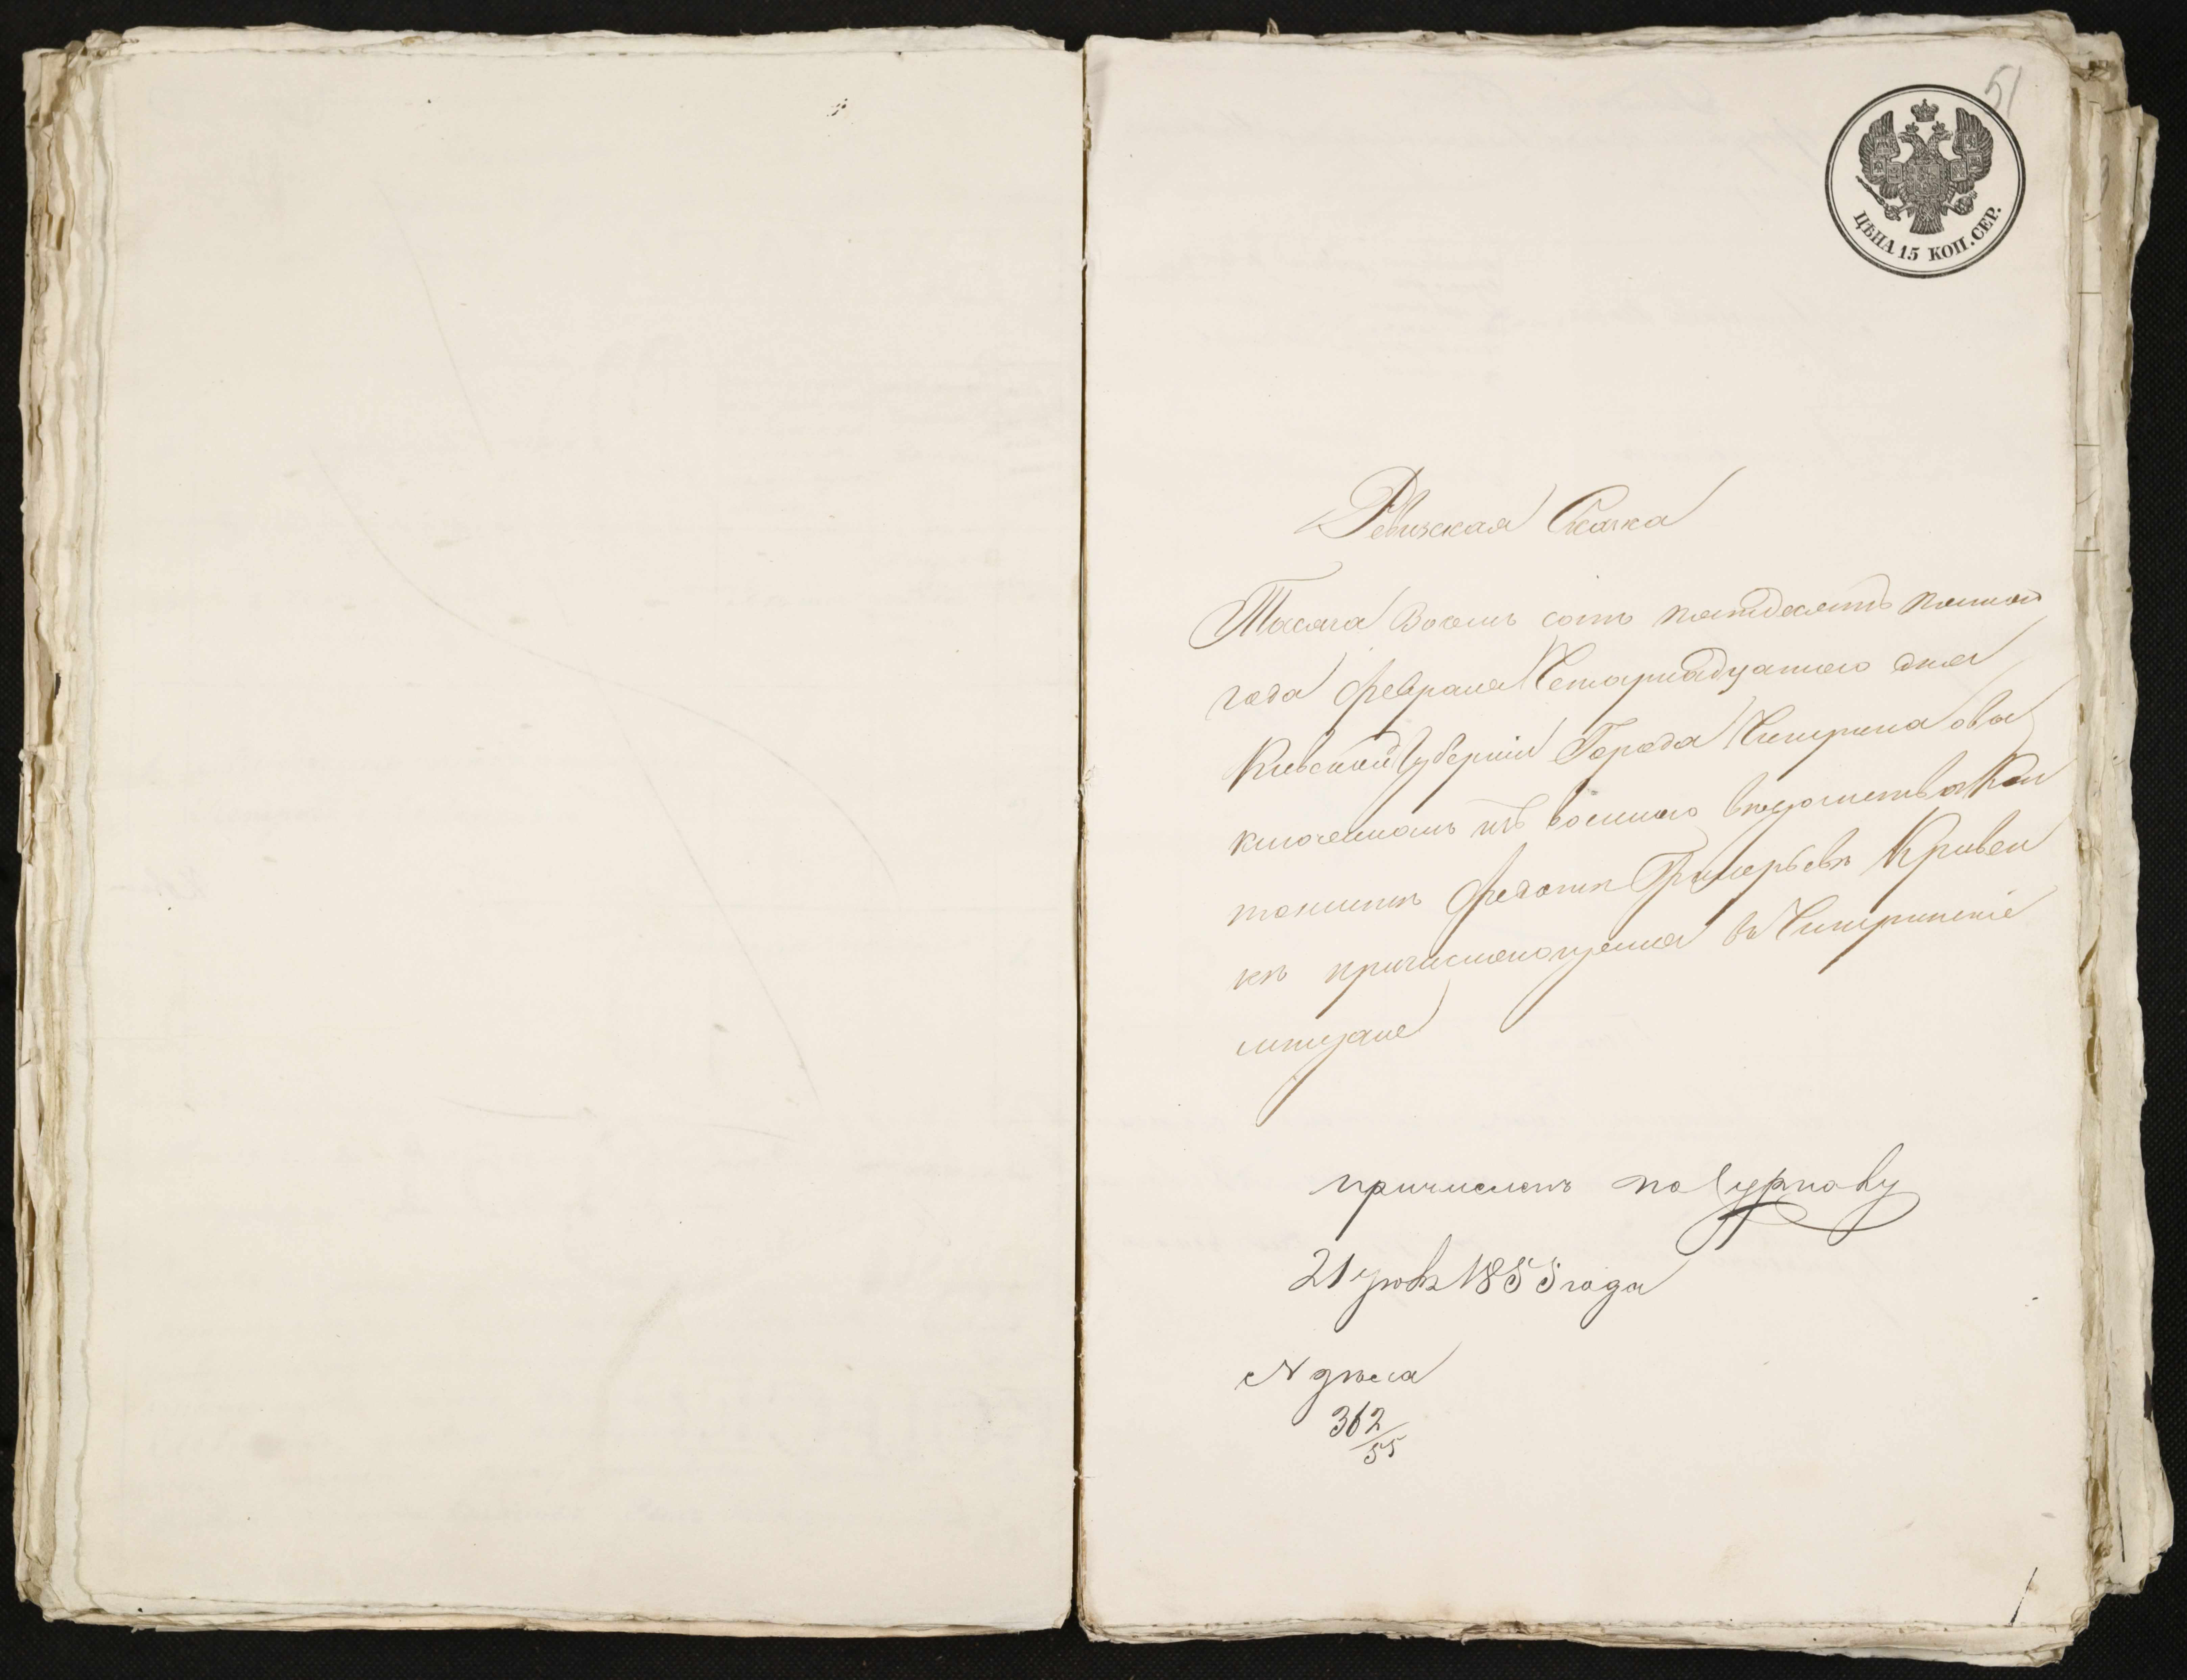 51
ЦѢНА 15 КОП. СЕР.
Ревизская Скаска
Тысяча восемь сотъ пятдесятъ пятого
года Февраля Четырнадцатого дня
Киевской Губернии Города Чигирина обы
ключенномъ изъ военного вѣдомства Кан
тонистъ Федотъ Григорьевъ Кривен
къ причисляющемся въ Чигиринскіе
мещане
причисленъ по журналу
21 Июня 1855 года
N дѣла
362/55